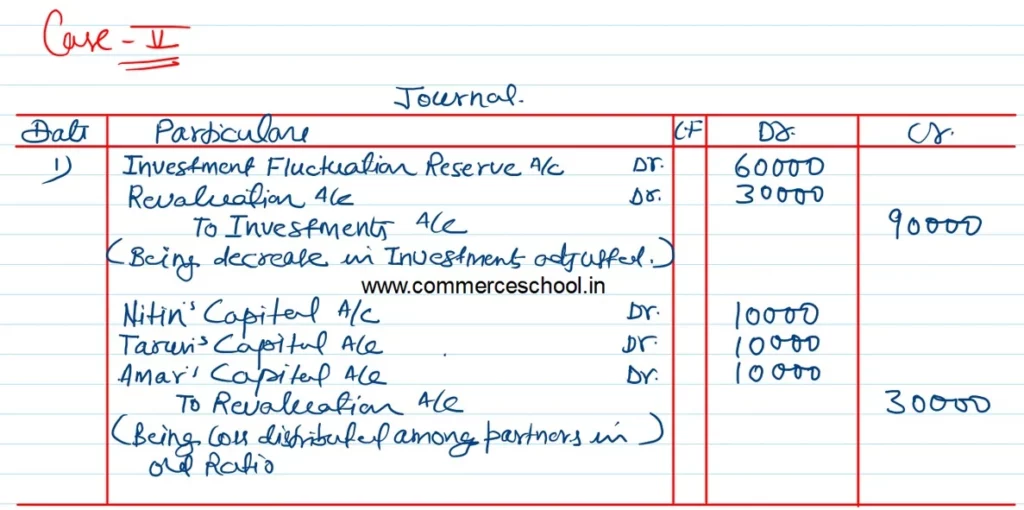 Case - V
Journal.
Date Particulars L.F Dr. Cr.
1) Investment Fluctuation Reserve A/c Dr. 60000
Revaluation A/c Dr. 30000
To Investments A/c 90000
(Being decrease in Investment adjusted.)
www.commerceschool.in
Nitin's Capital A/c Dr. 10000
Tarun's Capital A/c Dr. 10000
Amar's Capital A/c Dr. 10000
To Revaluation A/c 30000
(Being loss distributed among partners in)
old Ratio